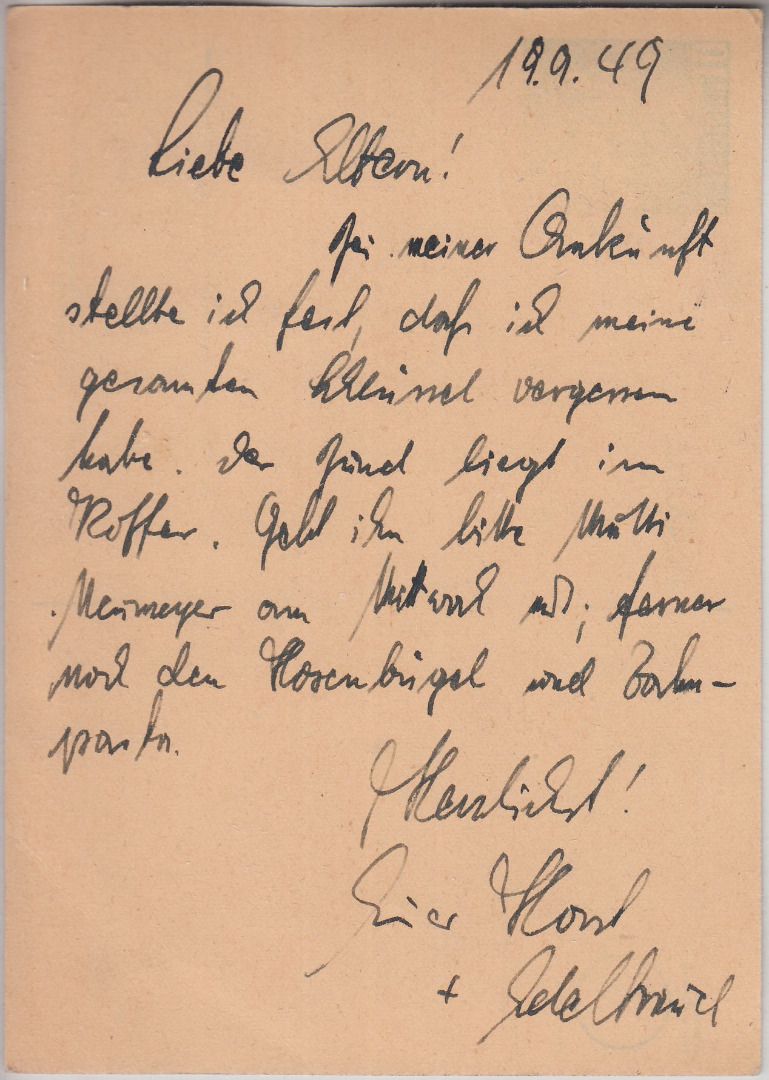 19.9.49
Liebe Eltern!
Bei meiner Ankunft
stellte ich fest, daß ich meine
gesamten Schlüssel vergessen
habe. Der Bund liegt im
Koffer. Gebt ihn bitte Mutti
Neumeyer am Mittwoch mit; ferner
noch den Hosenbügel und Zahn-
pasta.
Herzlichst!
Euer Horst
+ Edeltraud